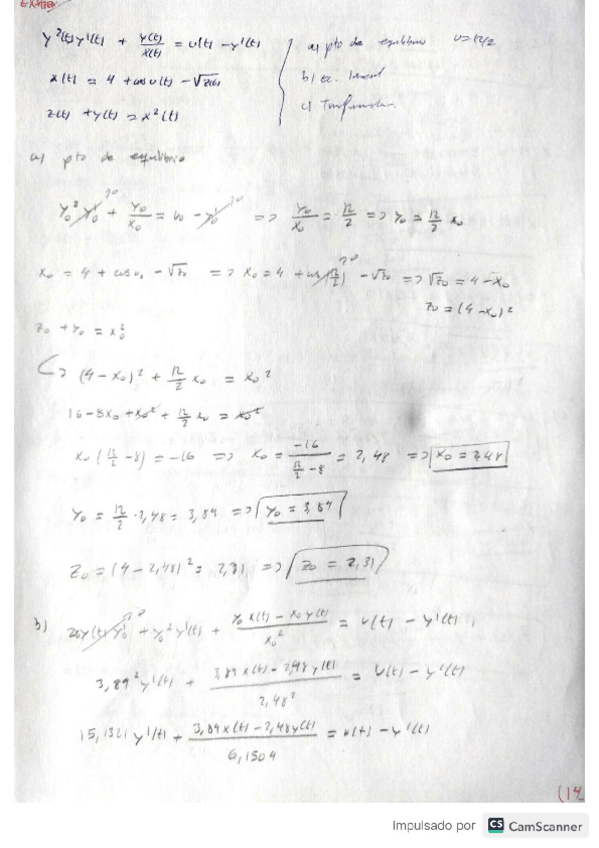 EXAMEN
y²(t)y'(t) + y(t)/x(t) = u(t) - y'(t)
a) pto de equilibrio u=π/2
x(t) = 4 + cos u(t) - √z(t)
b) ec. lineal
z(t) + y(t) = x²(t)
c)
a) pto de equilibrio
y₀² y₀' + y₀/x₀ = u₀ - y₀' => y₀/x₀ = π/2 => y₀ = π/2 x₀
x₀ = 4 + cos u₀ - √z₀ => x₀ = 4 + cos(π/2) - √z₀ => √z₀ = 4 - x₀
z₀ = (4-x₀)²
z₀ + y₀ = x₀²
↳ (4-x₀)² + π/2 x₀ = x₀²
16 - 8x₀ + x₀² + π/2 x₀ = x₀²
x₀ (π/2 - 8) = -16 => x₀ = -16/(π/2 - 8) = 2,48 => x₀ = 2,48
y₀ = π/2 · 2,48 = 3,89 => y₀ = 3,89
z₀ = (4-2,48)² = 2,31 => z₀ = 2,31
b) 2y₀y(t)y₀' + y₀² y'(t) + (y₀ x(t) - x₀ y(t))/x₀² = u(t) - y'(t)
3,89² y'(t) + (3,89 x(t) - 2,48 y(t))/2,48² = u(t) - y'(t)
15,1321 y'(t) + (3,89 x(t) - 2,48 y(t))/6,1504 = u(t) - y'(t)
(14
Impulsado por CS CamScanner